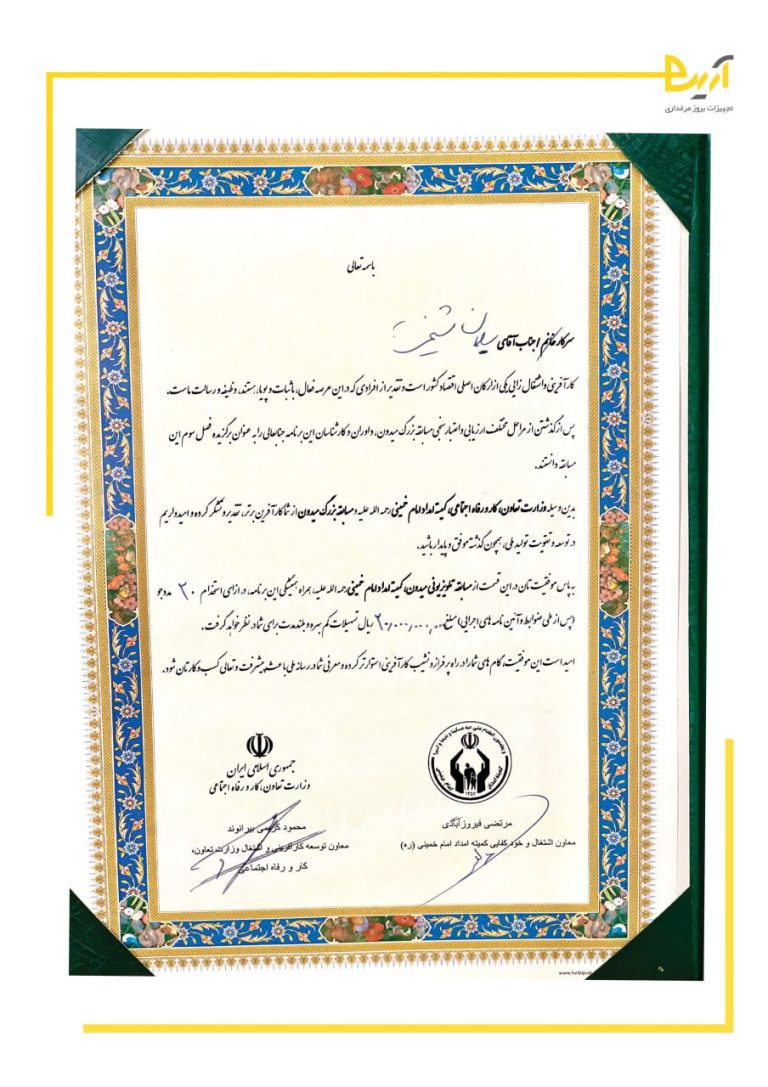 آرینا
تجهیزات بروز مرغداری
باسمه تعالی
سرکار خانم / جناب آقای سلمان
کارآفرینی و اشتغال زایی یکی از ارکان اصلی اقتصاد کشور است و تقدیر از افرادی که در این عرصه فعال، باثبات و پویا هستند، وظیفه و رسالت ماست.
پس از گذشتن از مراحل مختلف ارزیابی و اعتبارسنجی مسابقه بزرگ میدون، داوران و کارشناسان این برنامه جنابعالی را به عنوان برگزیده فصل سوم این
مسابقه دانستند.
بدین وسیله وزارت تعاون، کار و رفاه اجتماعی، کمیته امداد امام خمینی رحمه الله علیه و مسابقه بزرگ میدون از شما کارآفرین برتر، تقدیر و تشکر کرده و امیدواریم
در توسعه و تقویت تولید ملی، همچون گذشته موفق و پایدار باشید.
به پاس موفقیت تان در این قسمت از مسابقه تلویزیونی میدون، کمیته امداد امام خمینی رحمه الله علیه، همراه همیشگی این برنامه، در ازای استخدام ۲۰ مددجو
(پس از طی ضوابط و آئین نامه های اجرایی) مبلغ ریال تسهیلات کم بهره و بلندمدت برای شما در نظر خواهد گرفت.
امید است این موفقیت، گام های شما را در راه پر فراز و نشیب کارآفرینی استوارتر کرده و معرفی شما در رسانه ملی باعث پیشرفت و تعالی کسب و کارتان شود.
کمیته امداد
امام خمینی
۱۳۵۷
مرتضی فیروزآبادی
معاون اشتغال و خود کفایی کمیته امداد امام خمینی (ره)
جمهوری اسلامی ایران
وزارت تعاون، کار و رفاه اجتماعی
محمود کریمی بیرانوند
معاون توسعه کارآفرینی و اشتغال وزارت تعاون،
کار و رفاه اجتماعی